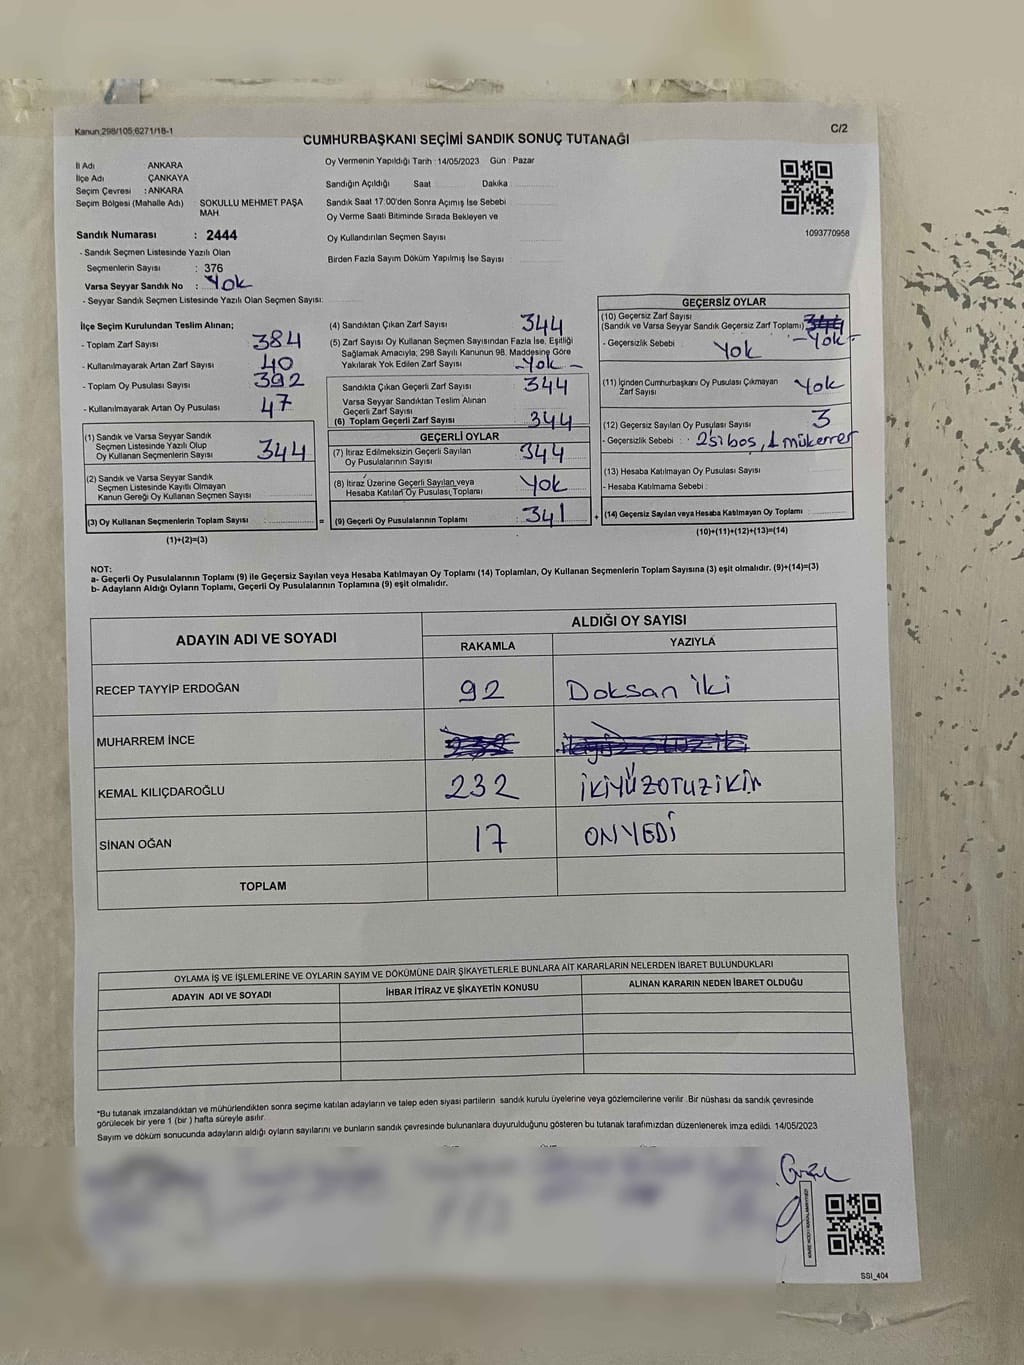 Kanun 298/105,6271/18-1
C/2
CUMHURBAŞKANI SEÇİMİ SANDIK SONUÇ TUTANAĞI
İl Adı ANKARA
İlçe Adı ÇANKAYA
Seçim Çevresi : ANKARA
Seçim Bölgesi (Mahalle Adı) SOKULLU MEHMET PAŞA MAH
Sandık Numarası : 2444
- Sandık Seçmen Listesinde Yazılı Olan
Seçmenlerin Sayısı : 376
Varsa Seyyar Sandık No : Yok
- Seyyar Sandık Seçmen Listesinde Yazılı Olan Seçmen Sayısı:
Oy Vermenin Yapıldığı Tarih : 14/05/2023 Gün : Pazar
Sandığın Açıldığı Saat Dakika
Sandık Saat 17:00'den Sonra Açımış İse Sebebi
Oy Verme Saati Bitiminde Sırada Bekleyen ve
Oy Kullandırılan Seçmen Sayısı
Birden Fazla Sayım Döküm Yapılmış İse Sayısı
1093770958
İlçe Seçim Kurulundan Teslim Alınan;
- Toplam Zarf Sayısı 384
- Kullanılmayarak Artan Zarf Sayısı 40
- Toplam Oy Pusulası Sayısı 392
- Kullanılmayarak Artan Oy Pusulası 47
(1) Sandık ve Varsa Seyyar Sandık
Seçmen Listesinde Yazılı Olup
Oy Kullanan Seçmenlerin Sayısı 344
(2) Sandık ve Varsa Seyyar Sandık
Seçmen Listesinde Kayıtlı Olmayan
Kanun Gereği Oy Kullanan Seçmen Sayısı
(3) Oy Kullanan Seçmenlerin Toplam Sayısı :
(1)+(2)=(3)
(4) Sandıktan Çıkan Zarf Sayısı 344
(5) Zarf Sayısı Oy Kullanan Seçmen Sayısından Fazla İse, Eşitliği
Sağlamak Amacıyla; 298 Sayılı Kanunun 98. Maddesine Göre
Yakılarak Yok Edilen Zarf Sayısı - Yok -
Sandıkta Çıkan Geçerli Zarf Sayısı 344
Varsa Seyyar Sandıktan Teslim Alınan
Geçerli Zarf Sayısı
(6) Toplam Geçerli Zarf Sayısı 344
GEÇERLİ OYLAR
(7) İtiraz Edilmeksizin Geçerli Sayılan
Oy Pusulalarının Sayısı : 344
(8) İtiraz Üzerine Geçerli Sayılan veya
Hesaba Katılan Oy Pusulası Toplamı Yok
= (9) Geçerli Oy Pusulalarının Toplamı : 341
GEÇERSİZ OYLAR
(10) Geçersiz Zarf Sayısı
(Sandık ve Varsa Seyyar Sandık Geçersiz Zarf Toplamı) 344 - Yok -
- Geçersizlik Sebebi Yok
(11) İçinden Cumhurbaşkanı Oy Pusulası Çıkmayan
Zarf Sayısı Yok
(12) Geçersiz Sayılan Oy Pusulası Sayısı 3
- Geçersizlik Sebebi : boş, 1 mükerrer
(13) Hesaba Katılmayan Oy Pusulası Sayısı
- Hesaba Katılmama Sebebi :
+ (14) Geçersiz Sayılan veya Hesaba Katılmayan Oy Toplamı :
(10)+(11)+(12)+(13)=(14)
NOT:
a- Geçerli Oy Pusulalarının Toplamı (9) ile Geçersiz Sayılan veya Hesaba Katılmayan Oy Toplamı (14) Toplamları, Oy Kullanan Seçmenlerin Toplam Sayısına (3) eşit olmalıdır. (9)+(14)=(3)
b- Adayların Aldığı Oyların Toplamı, Geçerli Oy Pusulalarının Toplamına (9) eşit olmalıdır.
ADAYIN ADI VE SOYADI
ALDIĞI OY SAYISI
RAKAMLA YAZIYLA
RECEP TAYYİP ERDOĞAN 92 Doksan iki
MUHARREM İNCE 232
KEMAL KILIÇDAROĞLU 232 İKİYÜZOTUZİKİ
SİNAN OĞAN 17 ONYEDİ
TOPLAM
OYLAMA İŞ VE İŞLEMLERİNE VE OYLARIN SAYIM VE DÖKÜMÜNE DAİR ŞİKAYETLERLE BUNLARA AİT KARARLARIN NELERDEN İBARET BULUNDUKLARI
ADAYIN ADI VE SOYADI İHBAR İTİRAZ VE ŞİKAYETİN KONUSU ALINAN KARARIN NEDEN İBARET OLDUĞU
*Bu tutanak imzalandıktan ve mühürlendikten sonra seçime katılan adayların ve talep eden siyasi partilerin sandık kurulu üyelerine veya gözlemcilerine verilir .Bir nüshası da sandık çevresinde
görülecek bir yere 1 (bir ) hafta süreyle asılır.
Sayım ve döküm sonucunda adayların aldığı oyların sayılarını ve bunların sandık çevresinde bulunanlara duyurulduğunu gösteren bu tutanak tarafımızdan düzenlenerek imza edildi. 14/05/2023
SSI_404